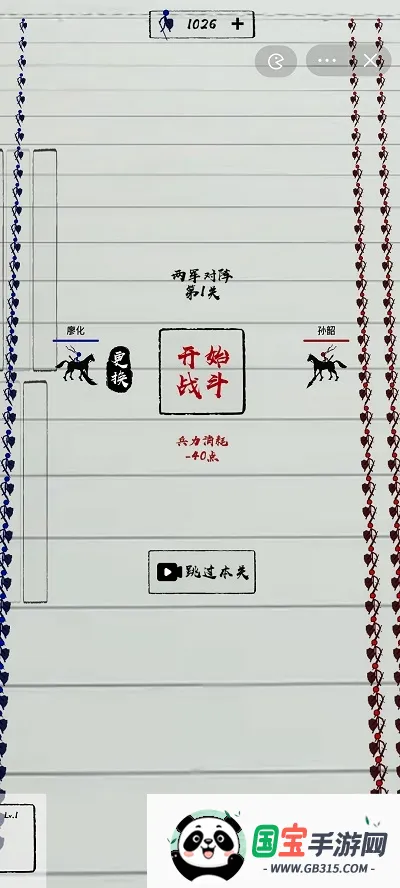 1026 +
两军对阵
第1关
廖化
孙韶
更换
开始
战斗
兵力消耗
-40点
跳过本关
Lv.1
国宝手游网
-WWW.GB315.COM-